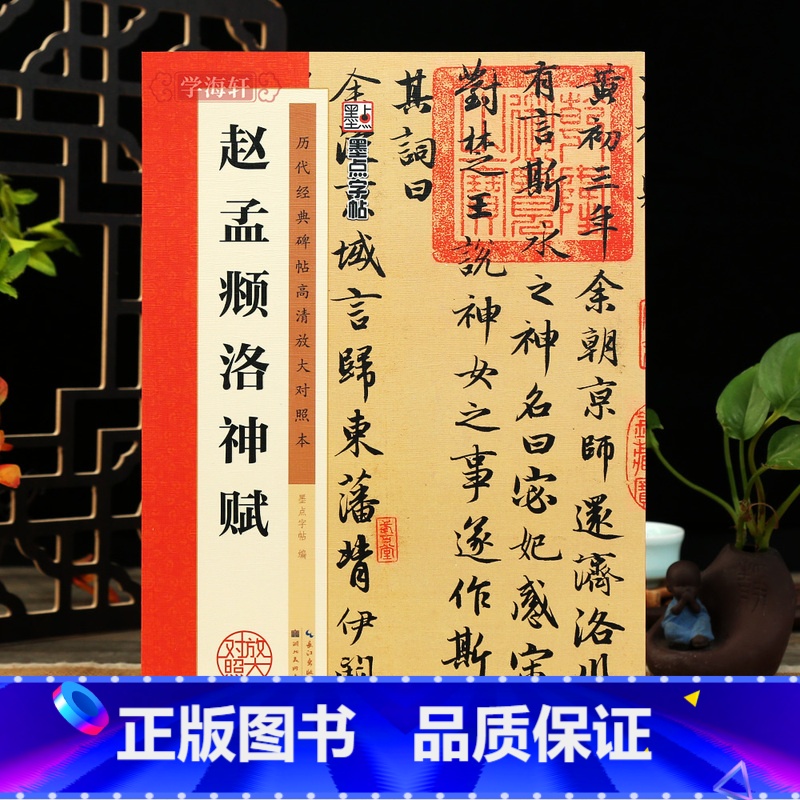 学海轩
赵孟𫖯洛神赋
历代经典碑帖高清放大对照本
墨点字帖 编
放大
对照
墨点
墨点字帖
黄初三年余朝京師還濟洛川
有言斯水之神名曰宓妃感宋
對楚王說神女之事遂作斯
其詞曰
余從京域言歸東藩背伊闕
正版图书 品质保证